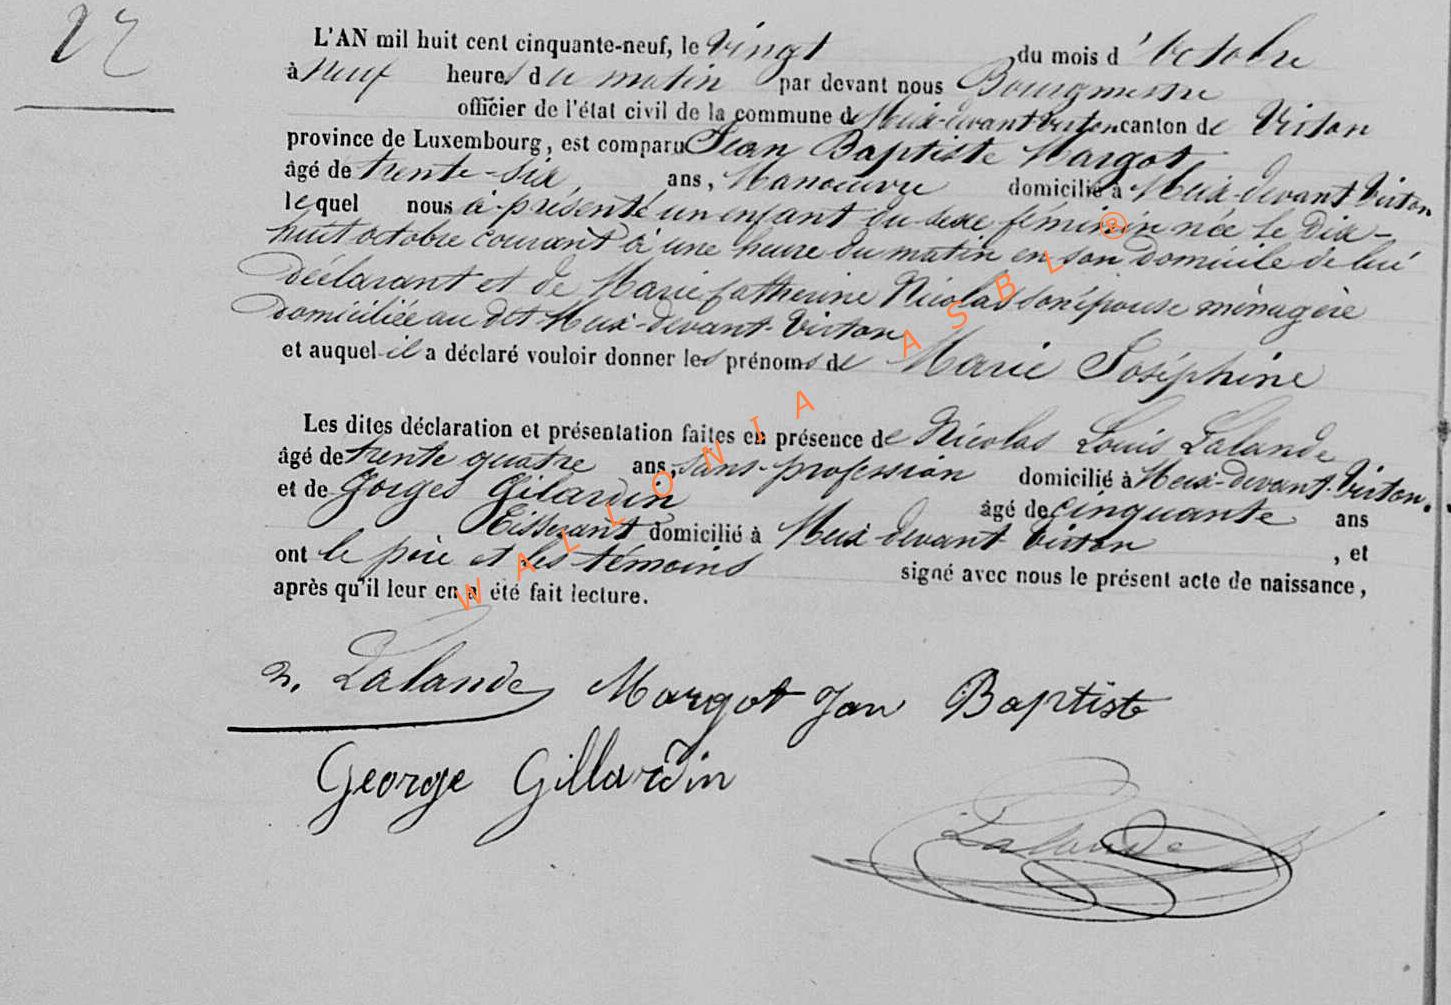 22
L'AN mil huit cent cinquante-neuf, le Vingt du mois d'Octobre
à Neuf heures du matin par devant nous Bourgmestre
officier de l'état civil de la commune de Meix-devant Virton canton de Virton
province de Luxembourg, est comparu Jean Baptiste Margot,
âgé de trente-six, ans, Manoeuvre domicilié à Meix-devant Virton
lequel nous à présenté un enfant du sexe féminin née le Dix-
huit octobre courant à une heure du matin en son domicile de lui
déclarant et de Marie Catherine Nicolas son épouse ménagère
domiciliée au dit Meix-devant-Virton
et auquel il a déclaré vouloir donner les prénoms de Marie Joséphine
Les dites déclaration et présentation faites en présence de Nicolas Louis Lalande
âgé de trente quatre ans, sans-profession domicilié à Meix-devant-Virton.
et de Gorges Gilardin âgé de cinquante ans
Tisserant domicilié à Meix devant Virton, et
ont le père et les témoins signé avec nous le présent acte de naissance,
après qu'il leur en a été fait lecture.
n. Lalande Margot Jan Baptiste
George Gillardin
Lalande
WALLONIA ASBL ®